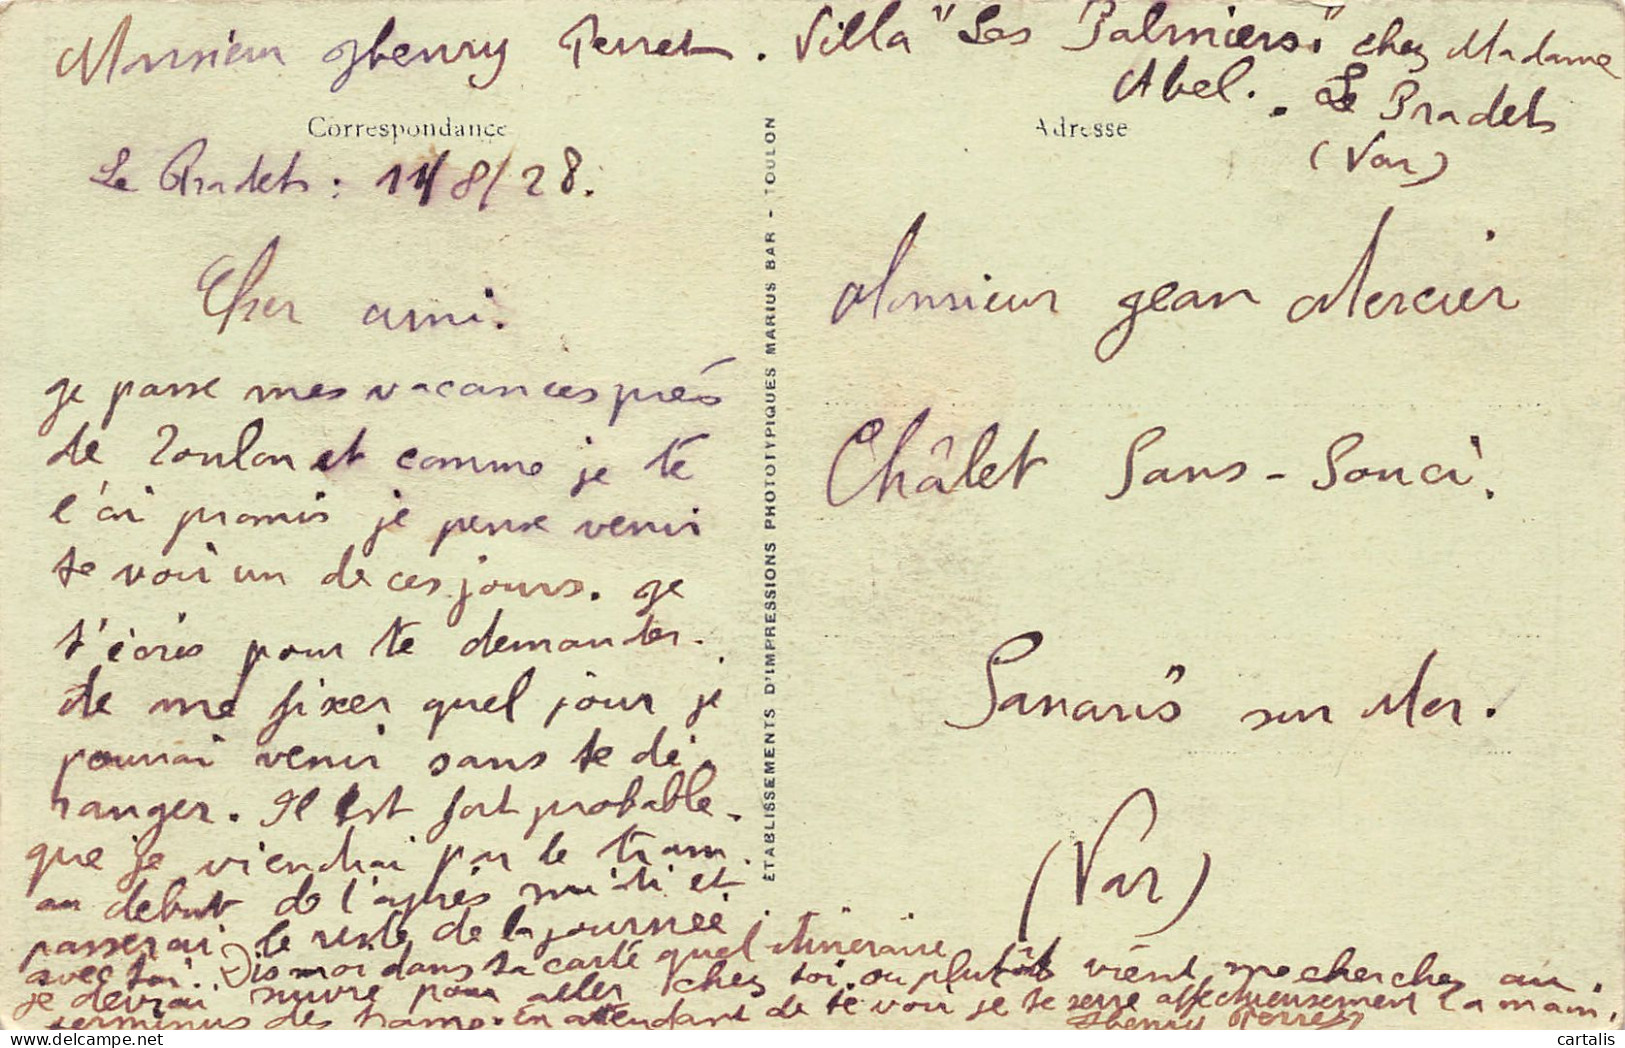 Monsieur Henry Perret. Villa "Les Palmiers" chez Madame
Abel. . Le Pradet
(Var)
Correspondance
Le Pradet : 11/8/28.
Cher ami.
je passe mes vacances près
de Toulon et comme je te
l'ai promis je pense venir
te voir un de ces jours. Je
t'écris pour te demander.
de me fixer quel jour je
pourrai venir sans te dé-
ranger. Il est fort probable.
que je viendrai par le tram.
au debut de l'après midi et
passerai le reste de la journée
avec toi. Dis moi dans ta carte quel itinéraire
je devrai suivre pour aller chez toi. ou plutôt vient me chercher au.
terminus des trams. en attendant de te voir je te serre affectueusement la main.
Henry Perret
ÉTABLISSEMENTS D'IMPRESSIONS PHOTOTYPIQUES MARIUS BAR - TOULON
Adresse
Monsieur Jean Mercier
Châlet Sans-Souci.
Sanaris sur Mer.
(Var)
cartalis